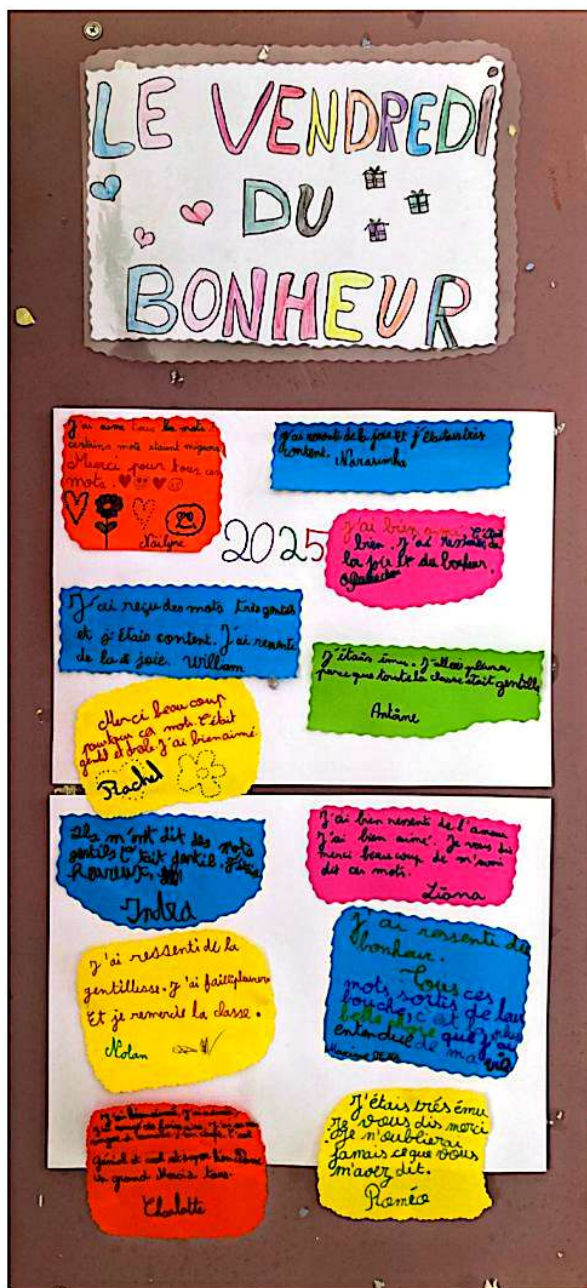 LE VENDREDI
DU
BONHEUR
J'ai aimé tous les mots.
certains mots étaient mignons
Merci pour tous ces
mots.
Naïlyne
J'ai ressenti de la joie et j'étais très
content. Narasimha
2025
J'ai bien aimé. C'était
bien. J'ai ressenti de
la joie et du bonheur.
J'ai reçu des mots très gentils
et j'étais content. J'ai ressenti
de la joie. William
J'étais ému. J'allais pleurer
parce que toute la classe était gentille
Antoine
Merci beaucoup
pour tous ces mots. C'était
gentil et drôle. J'ai bien aimé.
Rachel
Ils m'ont dit des mots
gentils C'était gentil. J'étais
Heureux.
Indra
J'ai bien ressenti de l'amour
J'ai bien aimé. Je vous dis
merci beaucoup de m'avoir
dit ces mots.
Liana
J'ai ressenti de la
gentillesse. J'ai failli pleurer
Et je remercie la classe.
Nolan
J'ai ressenti du
bonheur.
Tous ces
mots sortis de leur
bouche, c'est la plus
belle chose que j'ai
entendue de ma vie
génial et cool et super bien
un grand Merci à tous.
Charlotte
J'étais trés ému
Je vous dis merci
Je n'oublierai
jamais ce que vous
m'avez dit.
Roméo